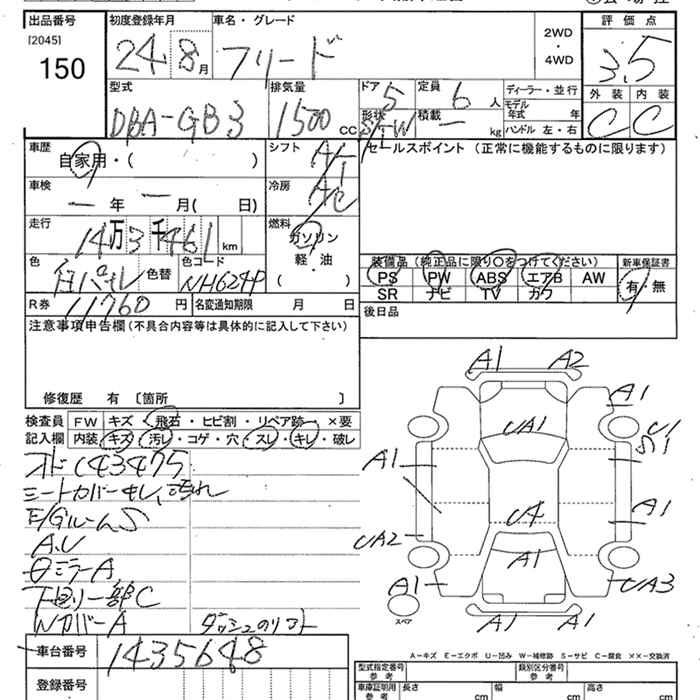 出品番号 初度登録年月 車名・グレード 評価点
[2045]
150 24.8月 フリード 2WD・4WD 3.5
型式 排気量 ドア 5 定員 6人 ディーラー・並行 外装 内装
DBA-GB3 1500 CC 形状 S/W 積載 ― kg モデル年式 年 ハンドル 左・右 C C
車歴 自家用・( ) シフト AT セールスポイント (正常に機能するものに限ります)
車検 ― 年 ― 月( 日) 冷房 AC
走行 14万3千461km 燃料 ガソリン
軽・油
( )
色 白パール 色替 色コード NH624P
装備品 (純正品に限り○をつけてください) 新車保証書
PS PW ABS エアB AW 有・無
SR ナビ TV カワ
R券 11760円 名変通知期限 月 日 後日品
注意事項申告欄 (不具合内容等は具体的に記入して下さい)
修復歴 有 〔箇所 〕
検査員 FW キズ・飛石・ヒビ割・リペア跡― ×要
記入欄 内装 キズ・汚レ・コゲ・穴・スレ・キレ・破レ
オド143475
シートカバーキレ、汚れ
E/GルームS
A.U
ミラーA
下回り一部C
Wカバー A ダッシュのリフト
A1 A2
A1
UA1 U1
S1
A1
A1
UA
UA2
A1
A1 UA3
スペア
A1 A1
A-キズ E-エクボ U-凹み W-補修跡 S-サビ C-腐食 ××-交換済
車台番号 1435648
型式指定番号 参考 類別区分番号 参考
登録番号 車庫証明用 参考 長さ cm 幅 cm 高さ cm